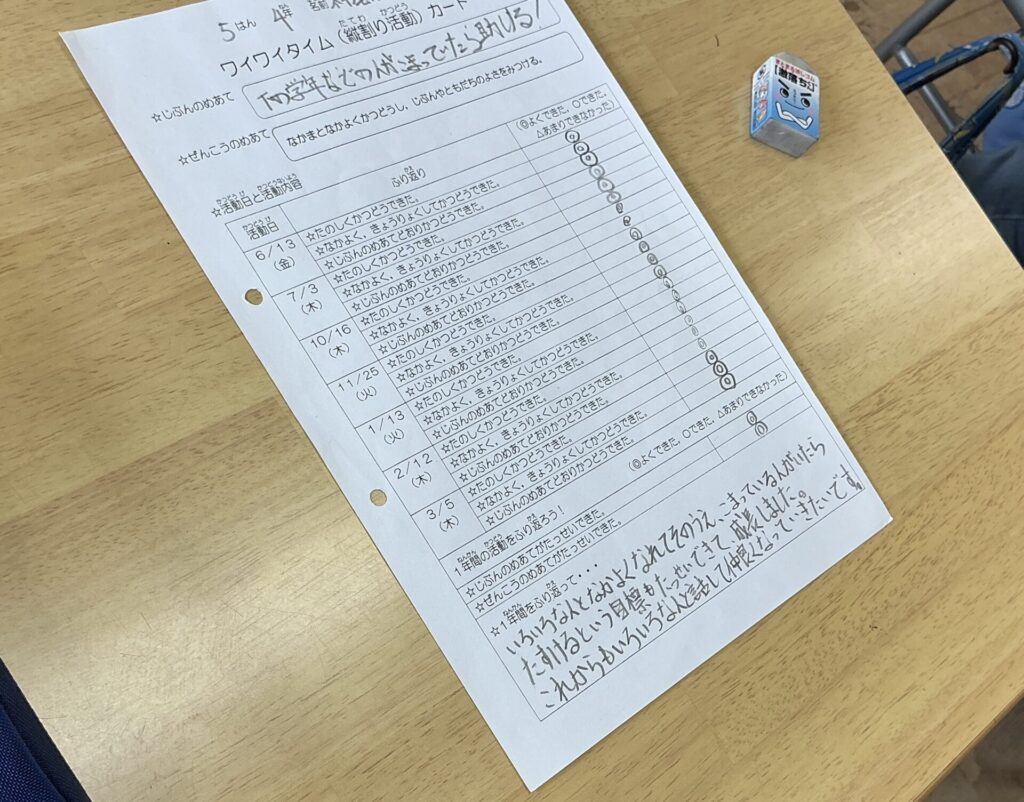 5はん 4年 名前
ワイワイタイム(縦割り活動)カード
☆じぶんのめあて 下の学年などの人がこまっていたら助ける!
☆ぜんこうのめあて なかまとなかよくかつどうし、じぶんやともだちのよさをみつける。
☆活動日と活動内容
(◎よくできた、○できた、△あまりできなかった)
活動日 ふり返り
6/13(金) ☆たのしくかつどうできた。 ◎
☆なかよく、きょうりょくしてかつどうできた。 ◎
☆じぶんのめあてどおりかつどうできた。 ◎
7/3(木) ☆たのしくかつどうできた。
☆なかよく、きょうりょくしてかつどうできた。
☆じぶんのめあてどおりかつどうできた。
10/16(木) ☆たのしくかつどうできた。
☆なかよく、きょうりょくしてかつどうできた。
☆じぶんのめあてどおりかつどうできた。
11/25(火) ☆たのしくかつどうできた。
☆なかよく、きょうりょくしてかつどうできた。
☆じぶんのめあてどおりかつどうできた。
1/13(火) ☆たのしくかつどうできた。
☆なかよく、きょうりょくしてかつどうできた。
☆じぶんのめあてどおりかつどうできた。
2/12(木) ☆たのしくかつどうできた。
☆なかよく、きょうりょくしてかつどうできた。
☆じぶんのめあてどおりかつどうできた。
3/5(木) ☆たのしくかつどうできた。 ◎
☆なかよく、きょうりょくしてかつどうできた。 ◎
☆じぶんのめあてどおりかつどうできた。 ◎
1年間の活動をふり返ろう! (◎よくできた、○できた、△あまりできなかった)
☆じぶんのめあてがたっせいできた。 ◎
☆ぜんこうのめあてがたっせいできた。 ◎
☆1年間をふり返って・・・・
いろいろな人となかよくなれてそのうえ、こまっている人がいたら
たすけるという目標もたっせいできて、成長しました。
これからもいろいろな人と話して仲良くなっていきたいです。
激落ち